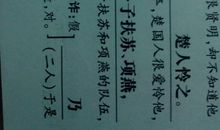 贤明,却不知道他
楚人怜之。
,楚国人很爱怜他,
子扶苏、项燕,
扶苏和项燕的队伍,
诈:假
对。]
乃
(二人)于是